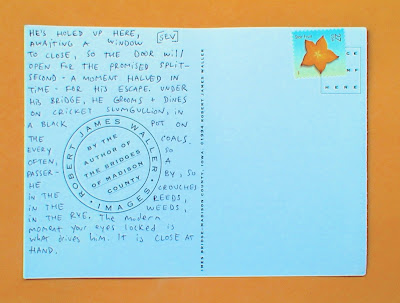 HE'S HOLED UP HERE,
AWAITING A WINDOW
SEV
TO CLOSE, SO THE DOOR will
OPEN FOR THE PROMISED SPLIT-
SECOND - A MOMENT HALVED IN
TIME - FOR HIS ESCAPE. UNDER
HIS BRIDGE, HE GROOMS + DINES
ON CRICKET SLUMGULLION, IN
A BLACK POT ON
THE COALS.
EVERY SO
OFTEN, A
PASSER- BY, SO
HE CROUCHES
IN THE REEDS,
IN THE WEEDS,
IN THE RYE. The modern
moment your eyes locked is
what drives him. IT IS CLOSE AT
HAND.
ROBERT JAMES WALLER
· IMAGES ·
BY THE
AUTHOR OF
THE BRIDGES
OF MADISON
COUNTY
HERE